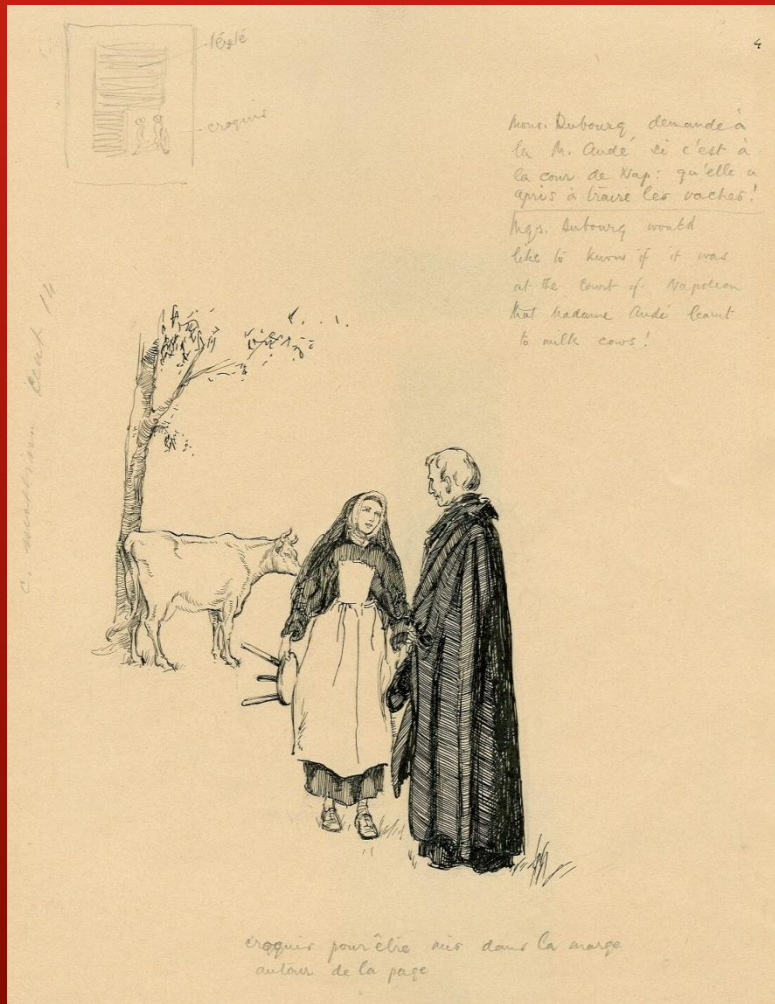 4
croquis
Mons. Dubourg demande à
la M. Audé, si c'est à
la cour de Nap: qu'elle a
apris à traire les vaches!
Mgs. Dubourg would
like to know if it was
at the Court of Napoleon
that Madame Audé learnt
to milk cows!
croquis pour être mis dans la marge
autour de la page